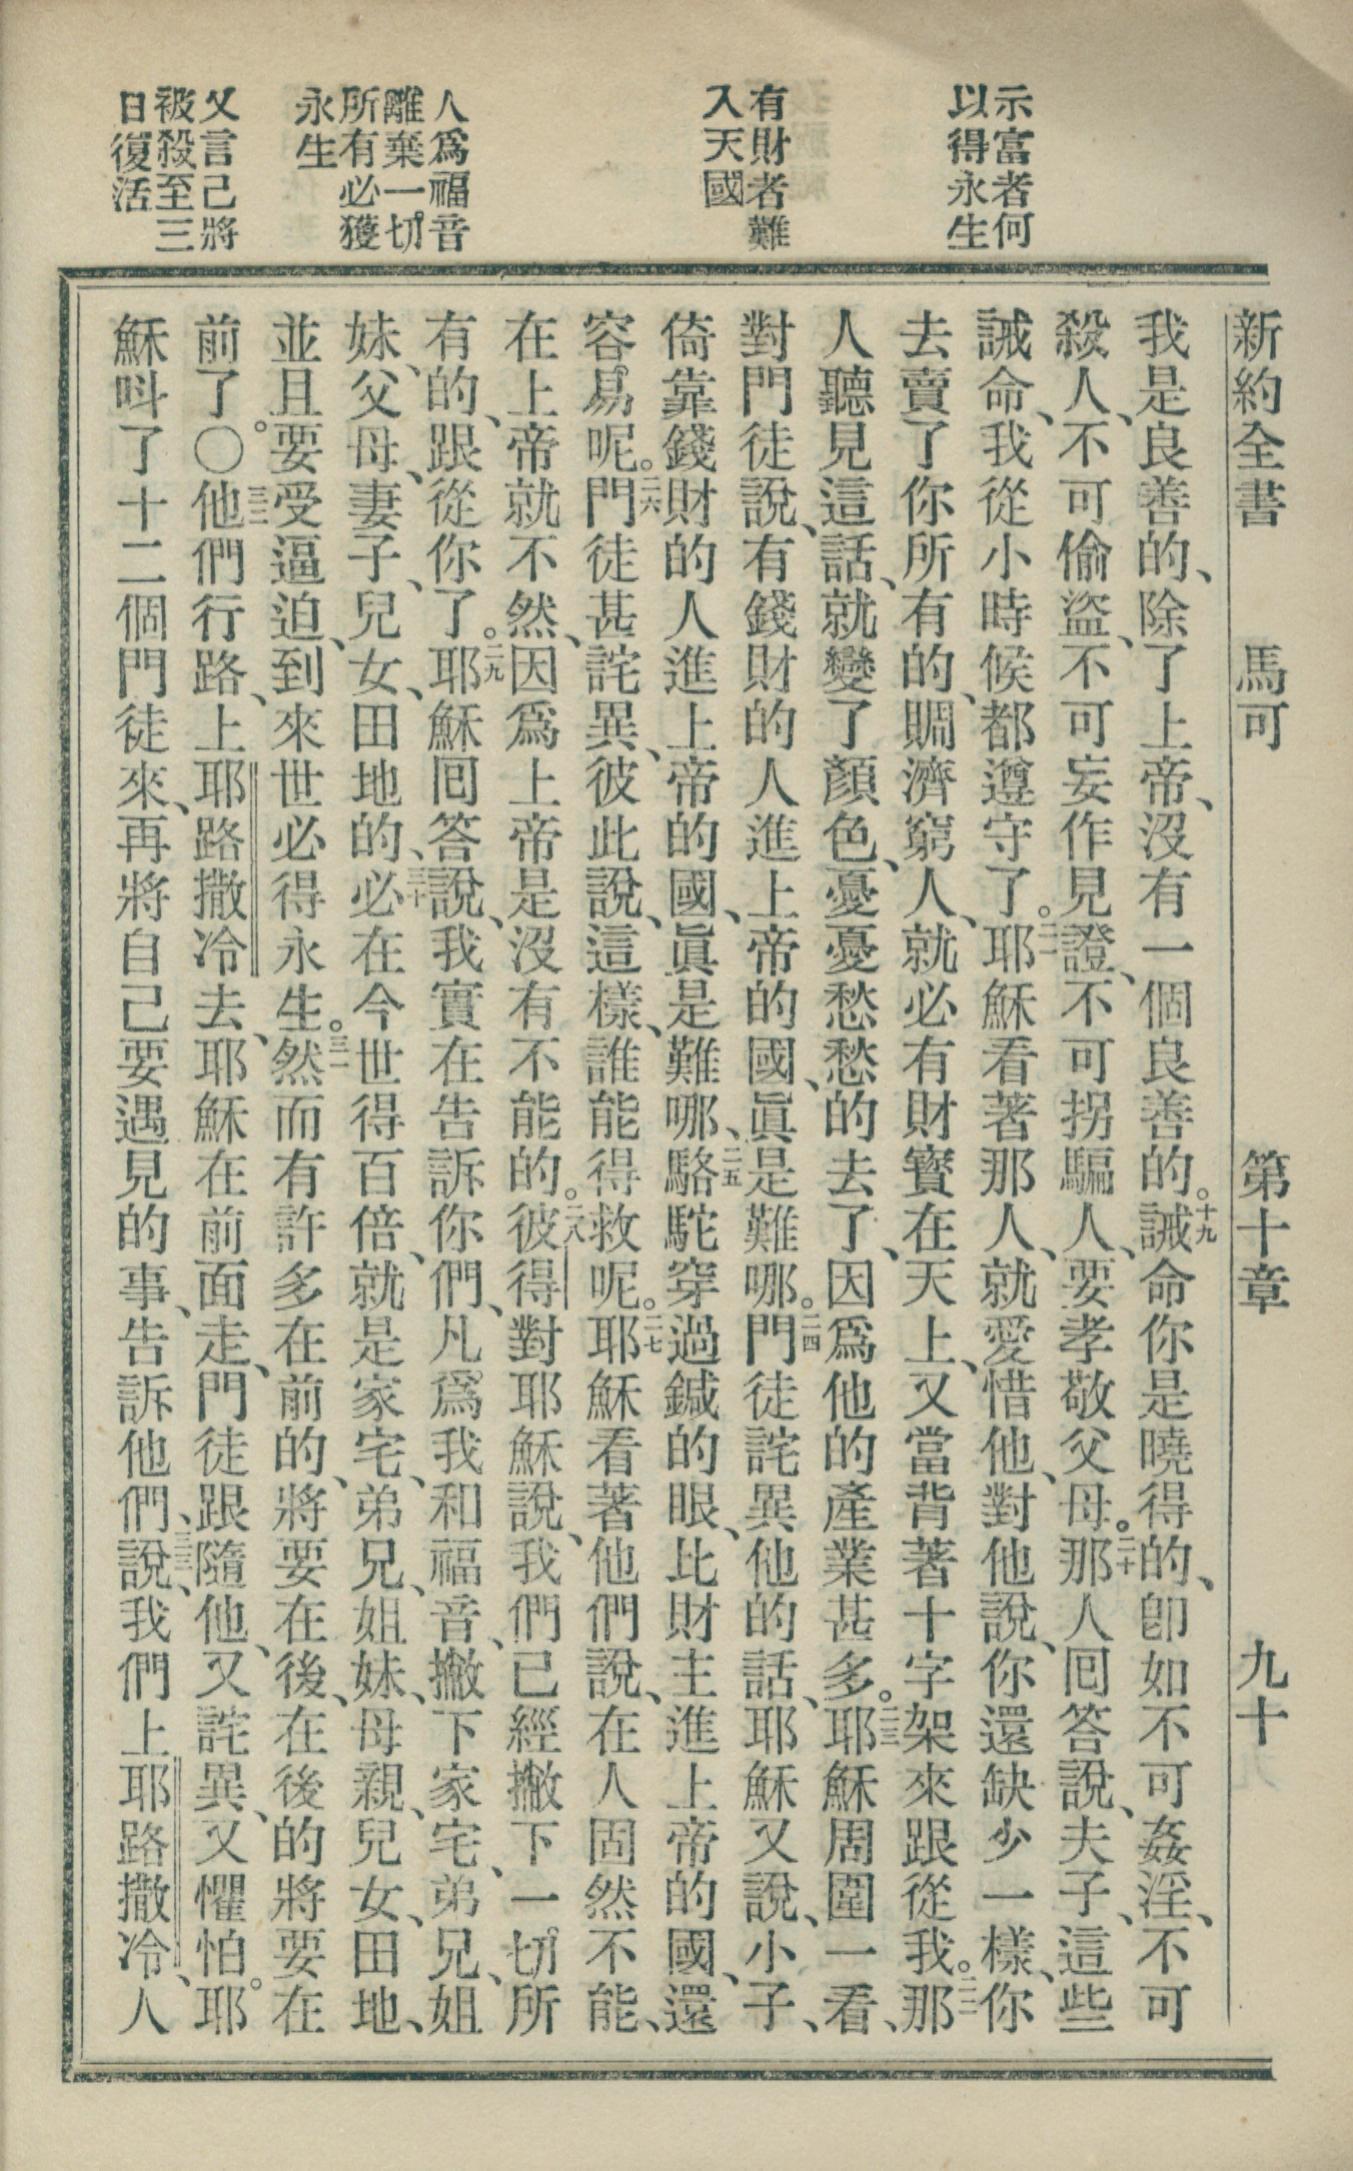 示富者何
以得永生
有財者難
入天國
人爲福音
離棄一切
所有必獲
永生
又言己將
被殺至三
日復活
新約全書 馬可 第十章 九十
我是良善的、除了上帝、沒有一個良善的。十九誡命你是曉得的、卽如不可姦淫、不可
殺人、不可偷盜、不可妄作見證、不可拐騙人、要孝敬父母。二十那人囘答說、夫子、這些
誡命、我從小時候都遵守了。二一耶穌看著那人、就愛惜他、對他說、你還缺少一樣、你
去賣了你所有的、賙濟窮人、就必有財寳在天上、又當背著十字架來跟從我。二二那
人聽見這話、就變了顏色、憂憂愁愁的去了、因爲他的產業甚多。二三耶穌周圍一看、
對門徒說、有錢財的人進上帝的國、眞是難哪。二四門徒詫異他的話、耶穌又說、小子、
倚靠錢財的人進上帝的國、眞是難哪、二五駱駝穿過鍼的眼、比財主進上帝的國、還
容易呢。二六門徒甚詫異、彼此說、這樣、誰能得救呢。二七耶穌看著他們說、在人固然不能、
在上帝就不然、因爲上帝是沒有不能的。二八彼得對耶穌說、我們已經撇下一切所
有的、跟從你了。二九耶穌囘答說、我實在告訴你們、凡爲我和福音、撇下家宅、弟兄、姐
妹、父母、妻子、兒女、田地的、三十必在今世得百倍、就是家宅、弟兄、姐妹、母親、兒女、田地、
並且要受逼迫、到來世必得永生。三一然而有許多在前的、將要在後、在後的將要在
前了。〇三二他們行路、上耶路撒冷去、耶穌在前面走、門徒跟隨他、又詫異、又懼怕。耶
穌呌了十二個門徒來、再將自己要遇見的事、告訴他們、三三說、我們上耶路撒冷、人